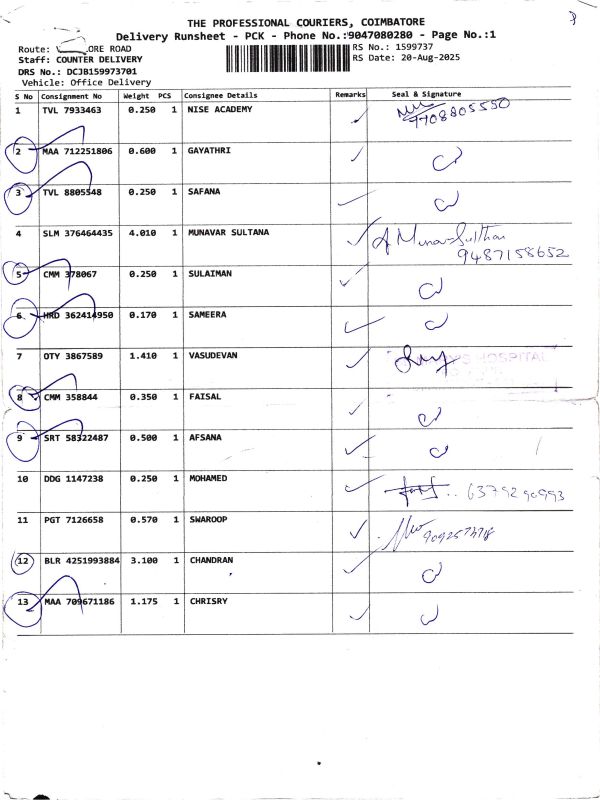 THE PROFESSIONAL COURIERS, COIMBATORE
Delivery Runsheet - PCK - Phone No.:9047080280 - Page No.:1
Route: ORE ROAD
RS No.: 1599737
Staff: COUNTER DELIVERY
RS Date: 20-Aug-2025
DRS No.: DCJB159973701
Vehicle: Office Delivery
S No Consignment No Weight PCS Consignee Details Remarks Seal & Signature
1 TVL 7933463 0.250 1 NISE ACADEMY 7708805550
2 MAA 712251806 0.600 1 GAYATHRI
3 TVL 8805548 0.250 1 SAFANA
4 SLM 376464435 4.010 1 MUNAVAR SULTANA
9487158652
5 CMM 378067 0.250 1 SULAIMAN
6 HRD 362414950 0.170 1 SAMEERA
7 OTY 3867589 1.410 1 VASUDEVAN HOSPITAL
8 CMM 358844 0.350 1 FAISAL
9 SRT 58322487 0.500 1 AFSANA
10 DDG 1147238 0.250 1 MOHAMED 6379290993
11 PGT 7126658 0.570 1 SWAROOP
12 BLR 4251993884 3.100 1 CHANDRAN
13 MAA 709671186 1.175 1 CHRISRY